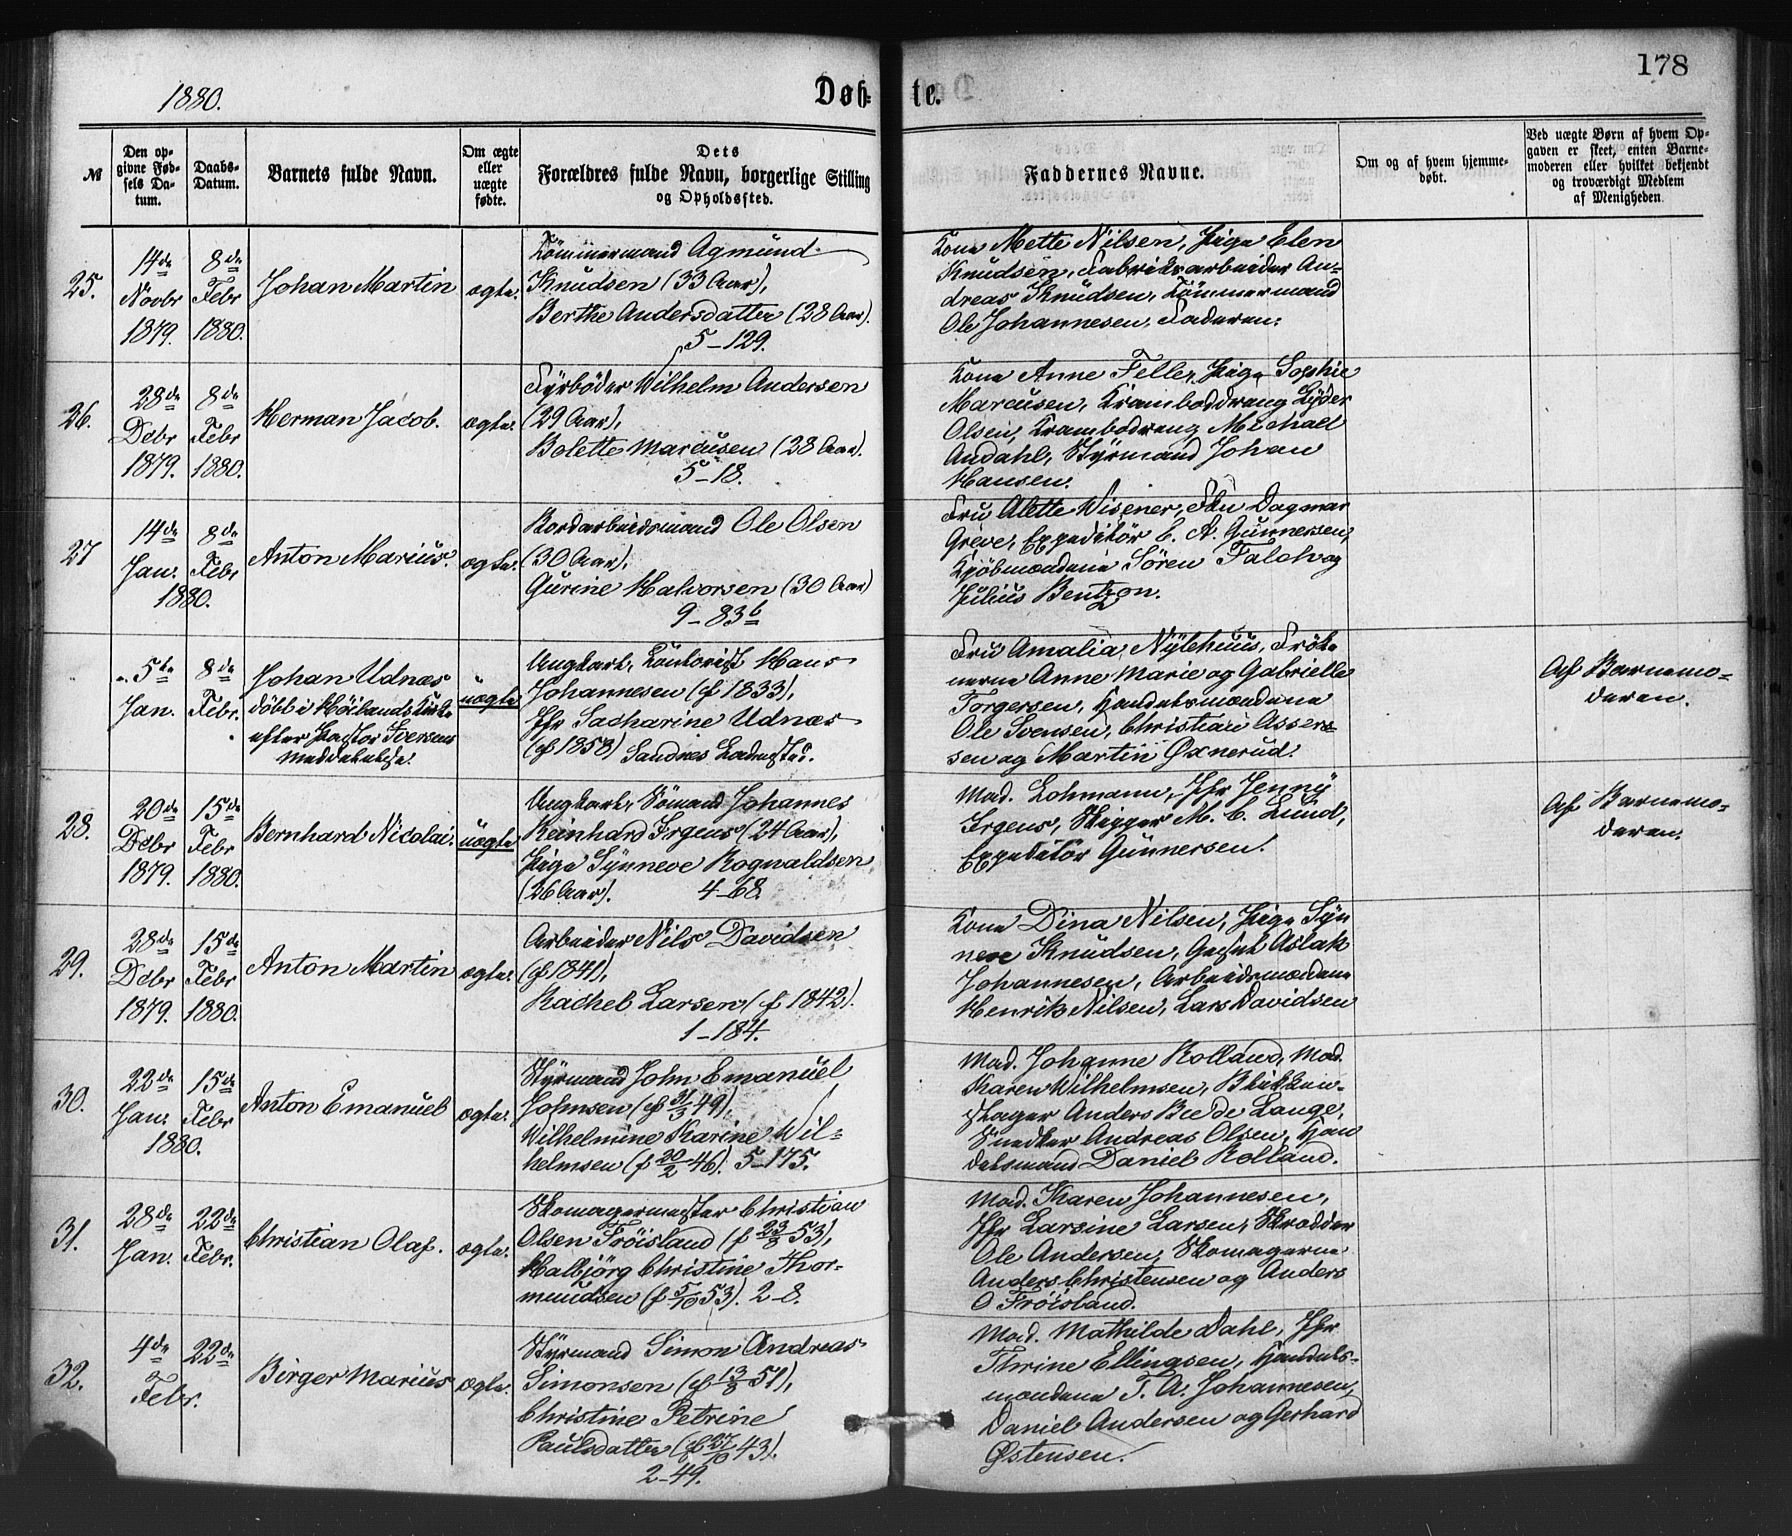 178
1880.
Døb- te.
№
Den opgivne Fødsels Datum.
Daabs-Datum.
Barnets fulde Navn.
Om ægte eller uægte fødte.
Dets Forældres fulde Navn, borgerlige Stilling og Opholdssted.
Faddernes Navne.
Om og af hvem hjemmedøbt.
Ved uægte Børn af hvem Opgaven er skeet, enten Barnemoderen eller hvilket bekjendt og troværdigt Medlem af Menigheden.
25.
14de Novbr 1879.
8de Febr 1880.
Johan Martin
ægte.
Tömmermand Agmund
Knudsen (33 Aar),
Berthe Andersdatter (28 Aar).
5-129.
Kone Mette Nilsen, Pige Elen
Knudsen, Fabrikarbeider An-
dreas Knudsen, Tömmermand
Ole Johannesen, Faderen.
26.
28de Dcbr 1879.
8de Febr 1880.
Herman Jacob.
ægte.
Fyrböder Wilhelm Andersen
(29 Aar),
Bolette Marcusen (28 Aar).
5-18.
Kone Anne Feller, Pige Sophie
Marcusen, Kramboddreng Lyder
Olsen, Krambodreng Michael
Andahl, Styrmand Johan
Hansen.
27
14de Jan. 1880.
8de Febr
Anton Marius.
ægte.
Bordarbeidsmand Ole Olsen
(30 Aar),
Gurine Halvorsen (30 Aar)
9-83b
Fru Alette Wisener, Fru Dagmar
Greve, Expeditör C. A. Gunnersen,
Kjöbmændene Sören Falch og
Julius Bentzon.
5te Jan.
8de Febr.
Johan Udnæs
döbt i Höilands Kirke
efter Pastor Iversens
Meddelelse.
uægte
Ungkarl, Kontorist Hans
Johannesen (f 1833),
Jfr Sacharine Udnæs
(f 1858) Sandnes Ladested.
Fru Amalia Nylehuus, Fröke-
nerne Anne Marie og Gabrielle
Torgersen, Handelsmændene
Ole Svensen, Christian Assers-
sen og Martin Øxnerud.
Af Barnemo-
deren.
28.
20de Dcbr 1879.
15de Febr 1880.
Bernhard Nicolai.
uægte
Ungkarl, Sömand Johannes
Reinhard Irgens (24 Aar),
Pige Synneve Rognvaldsen
(26 Aar). 4-68.
Mad. Lohmann, Jfr Jenny
Irgens, Skipper M. C. Lund,
Expeditör Gunnersen.
Af Barnemo-
deren.
29.
28de Dcbr 1879.
15de Febr 1880.
Anton Martin
ægte.
Arbeider Nils Davidsen
(f 1841),
Rachel Larsen (f 1842).
1-184.
Kone Dina Nilsen, Pige Syn
neve Knudsen, Gesel Aslak
Johannesen, Arbeidsmændene
Henrik Nilsen, Lars Davidsen
30.
22de Jan. 1880.
15de Febr
Anton Emanuel
ægte.
Styrmand John Emanuel
Johnsen (f 31/3 49),
Wilhelmine Karine Wil-
helmsen (f 20/2 46). 5-175.
Mad. Johanne Rolland, Mad.
Karen Wilhelmsen, Blikken-
slager Anders Bue de Lange,
Snedker Andreas Olsen, Han
delsmand Daniel Rolland.
31.
28de Jan.
22de Febr.
Christian Olaf.
ægte.
Skomagermester Christian
Olsen Fröisland (f 23/8 53),
Halbjörg Christine Thor-
mundsen (f 5/10 53). 2-8.
Mad. Karen Johannesen,
Jfr Larsine Larsen, Skrædder
Ole Andersen, Skomagerne
Anders Christensen og Anders
O Fröisland.
32.
4de Febr.
22de
Birger Marius
ægte.
Styrmand Simon Andreas
Simonsen (f 13/8 51),
Christine Petrine
Paulsdatter (f 27/10 43).
2-49.
Mad. Mathilde Dahl, Jfr
Thrine Ellingsen, Handels-
mændene T. A. Johannesen,
Daniel Andersen og Gerhard
Østensen.